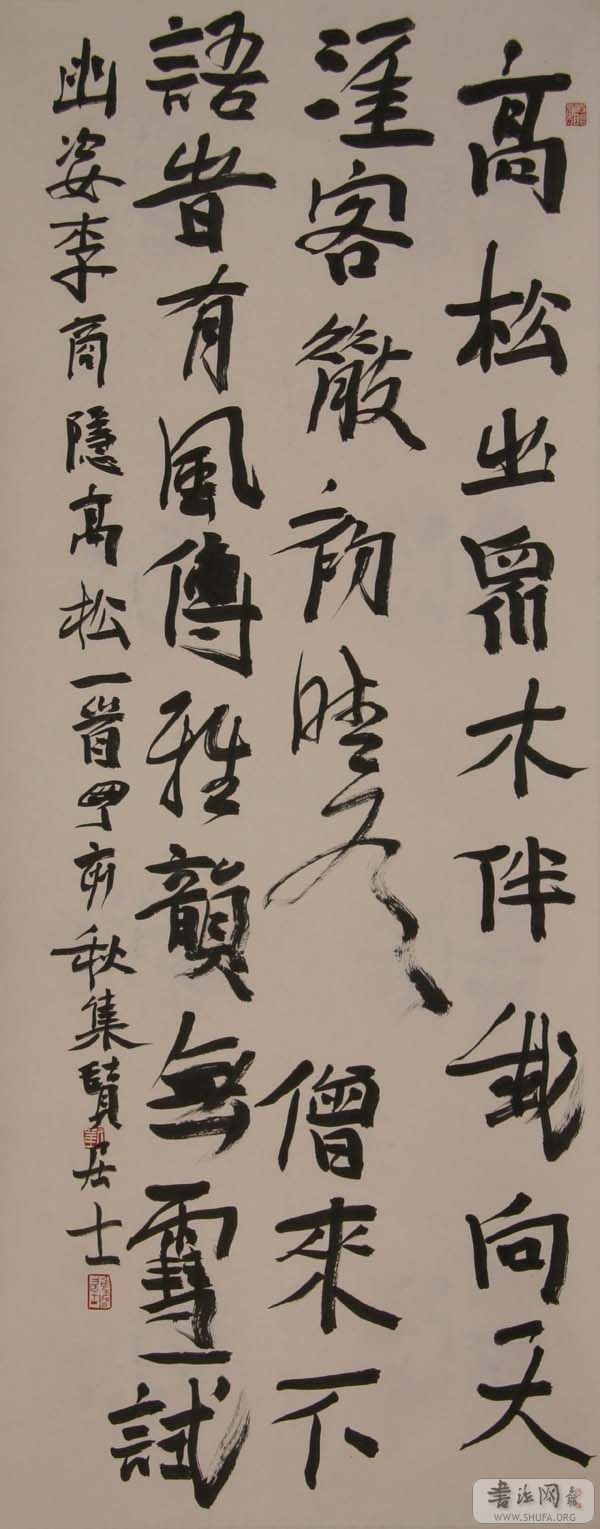 高松出眾木伴我向天
涯客散初晴後僧來不
語旹有風傳雅韻無雪試
幽姿李商隱高松一首丁亥秋集賢居士
書法网
WWW.SHUFA.ORG